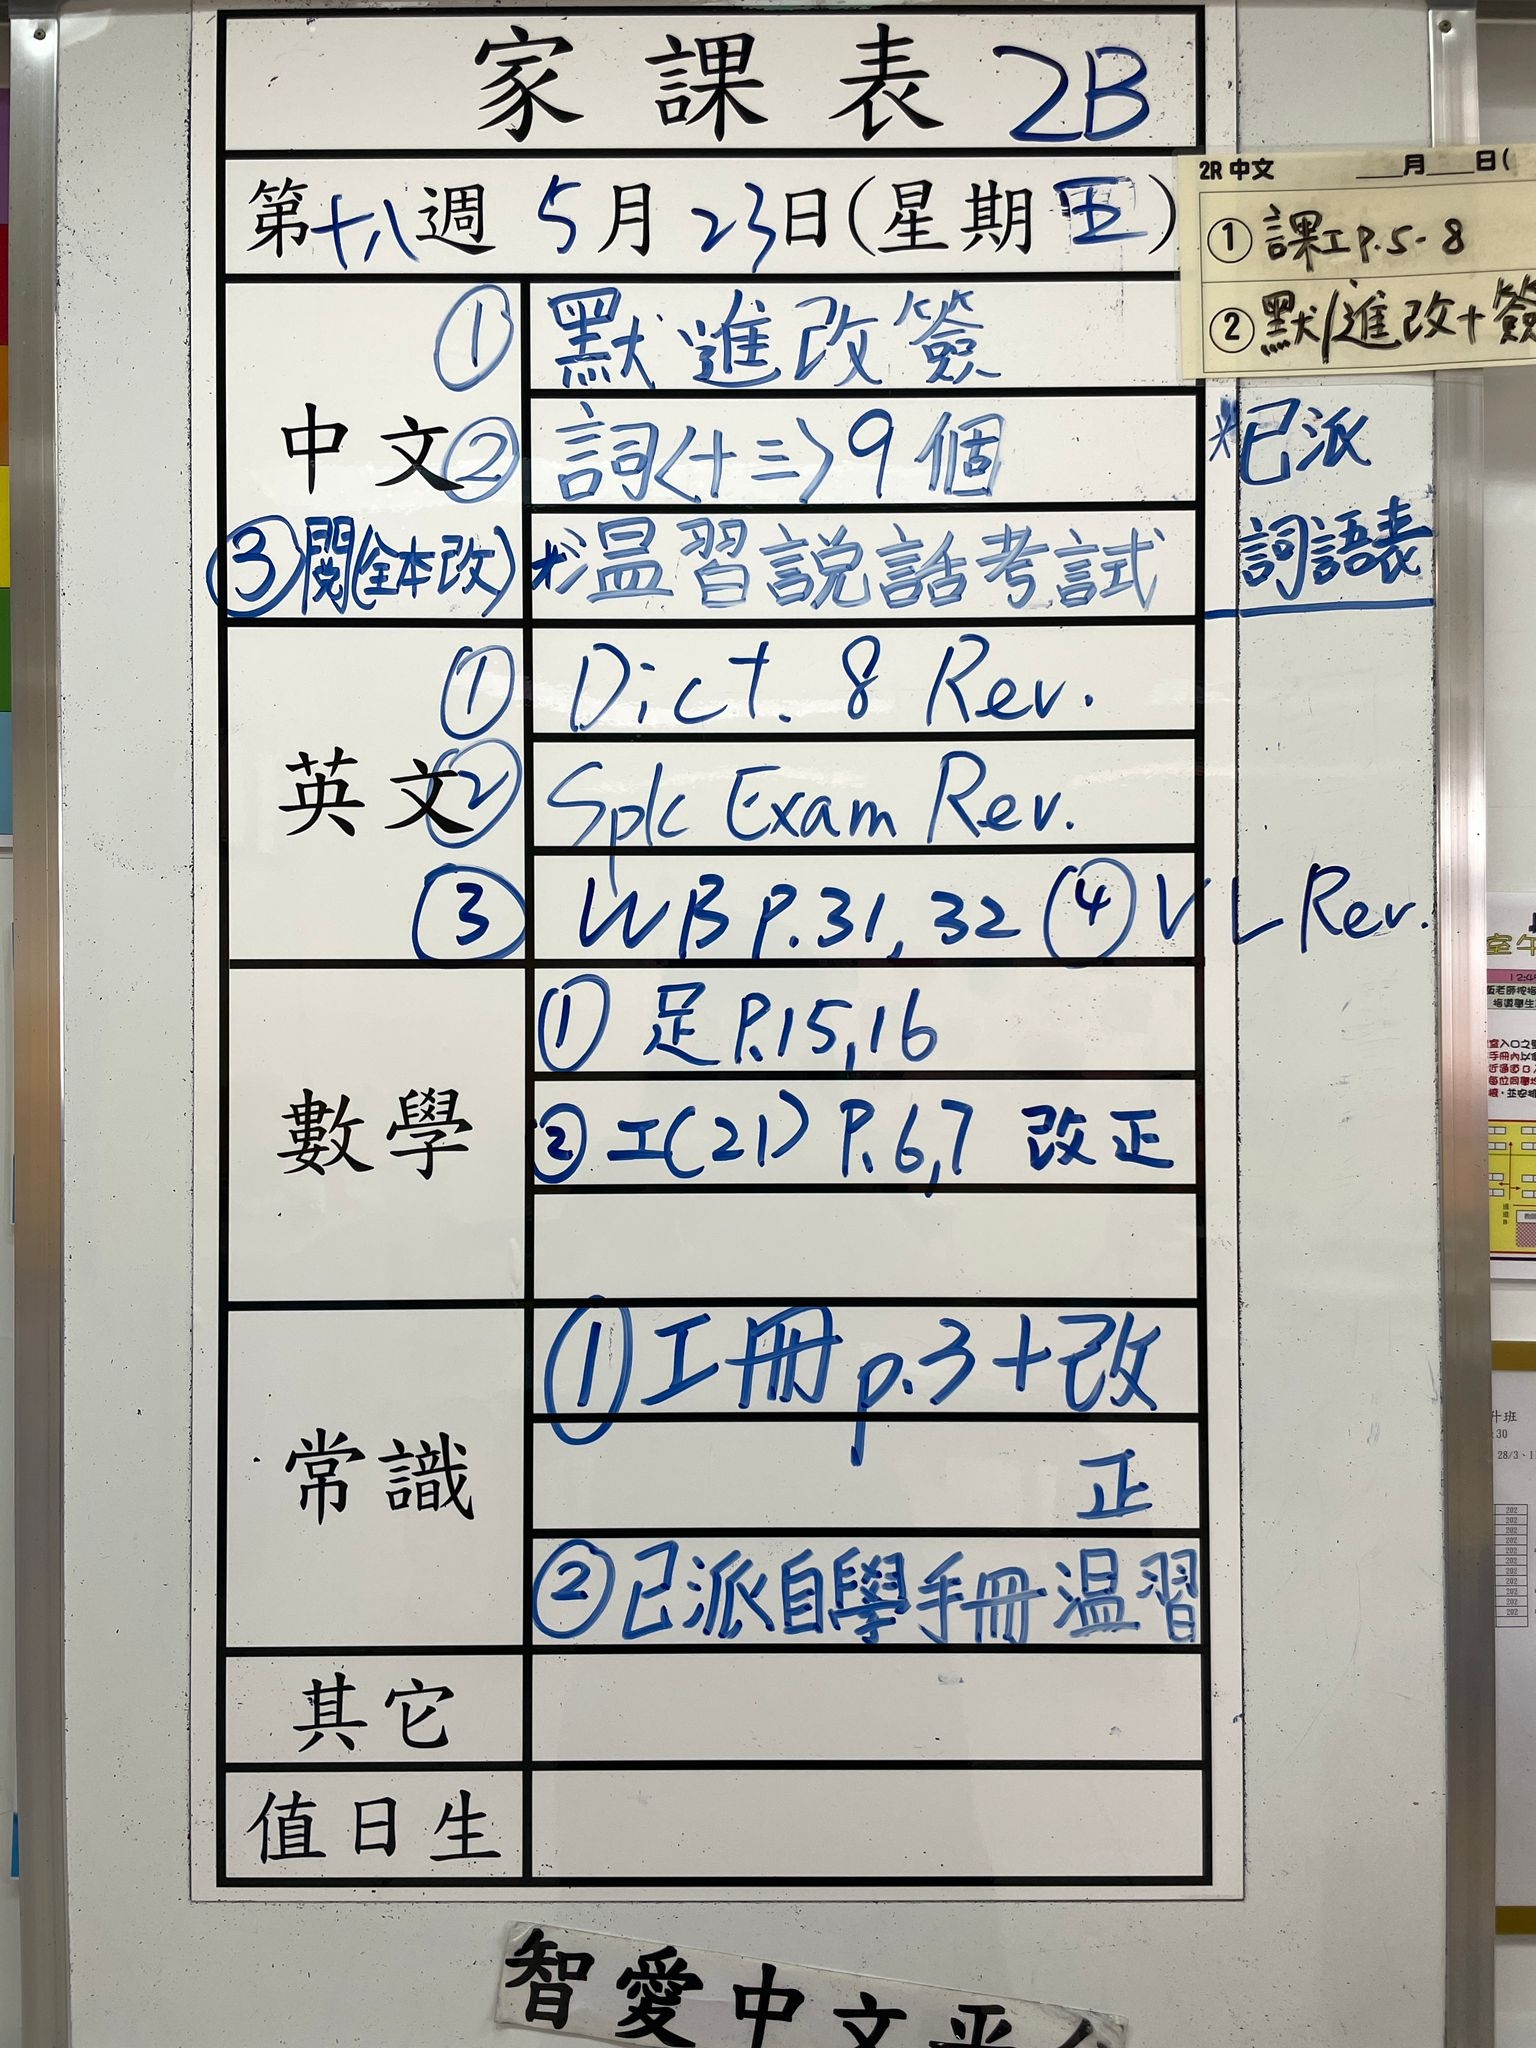 家課表 2B
第十八週 5月23日(星期五)
2R 中文 ___月___日(
① 課工P.5-8
② 默/進改+簽
中文
① 默進改簽
② 詞〈十三〉9個
*已派
詞語表
③ 閱(全本改)
*温習說話考試
英文
① Dict. 8 Rev.
② Spk Exam Rev.
③ WB P.31, 32 ④ VL Rev.
數學
① 足P.15,16
② 工(21) P.6,7 改正
常識
① 工冊 p.3+改
正
② 已派自學手冊温習
其它
值日生
智愛中文平